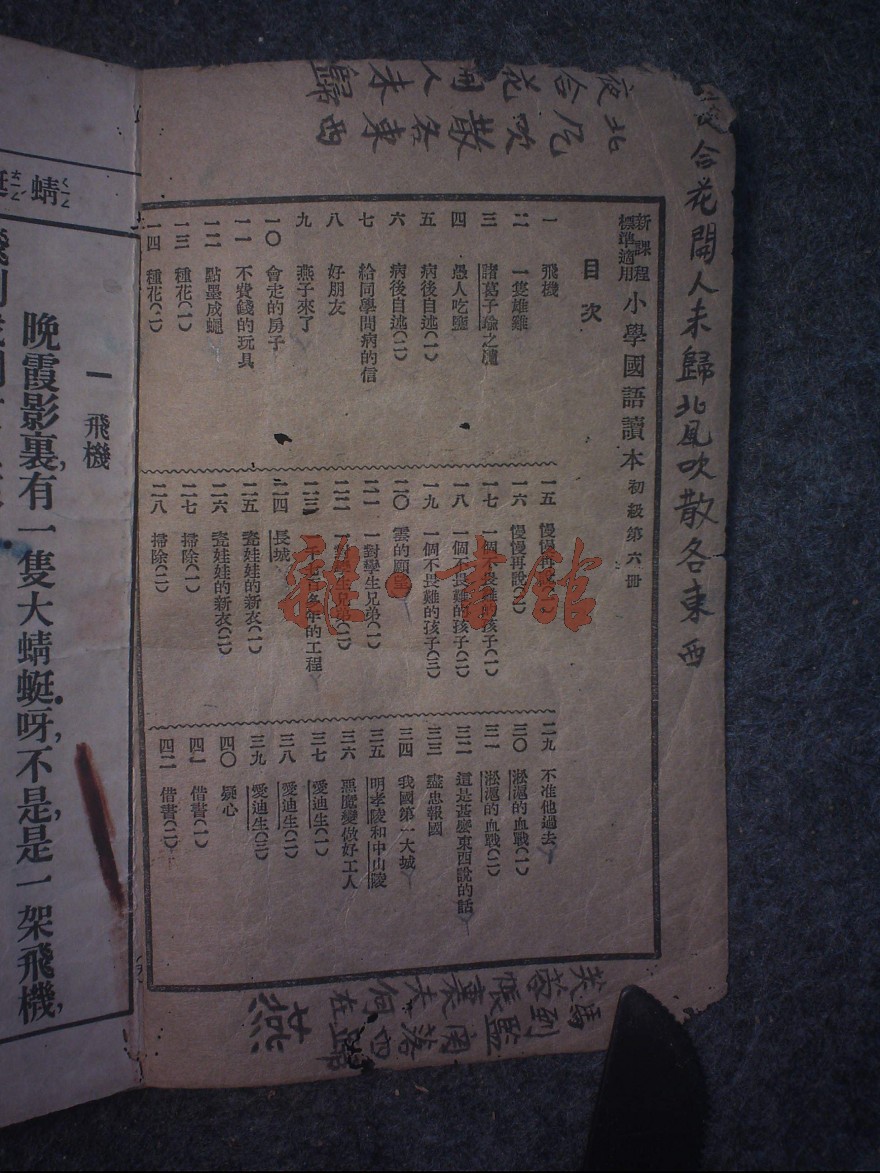 夜合花開人未歸
北風吹散各東西
夜合花開人未歸北風吹散各東西
新課程標準適用
小學國語讀本初級第六冊
目次
一 飛機
二 一隻雄雞
三 諸葛子瑜之驢
四 愚人吃鹽
五 病後自述(一)
六 病後自述(二)
七 給同學問病的信
八 好朋友
九 燕子來了
一〇 會走的房子
一一 不費錢的玩具
一二 點墨成蠅
一三 種花(一)
一四 種花(二)
一五 慢慢再說(一)
一六 慢慢再說(二)
一七 一個不畏難的孩子(一)
一八 一個不畏難的孩子(二)
一九 一個不畏難的孩子(三)
二〇 雲的願望
二一 一對孿生兄弟(一)
二二 一對孿生兄弟(二)
二三 二千七百多年的工程
二四 長城
二五 瓷娃娃的新衣(一)
二六 瓷娃娃的新衣(二)
二七 掃除(一)
二八 掃除(二)
二九 不准他過去
三〇 淞滬的血戰(一)
三一 淞滬的血戰(二)
三二 這是甚麼東西說的話
三三 盡忠報國
三四 我國第一大城
三五 明孝陵和中山陵
三六 惡魔變做好工人
三七 愛迪生(一)
三八 愛迪生(二)
三九 愛迪生(三)
四〇 疑心
四一 借書(一)
四二 借書(二)
雜·書館
燕
一 飛機
晚霞影裏,有一隻大蜻蜓呀,不是,是一架飛機,
蜻 蜓